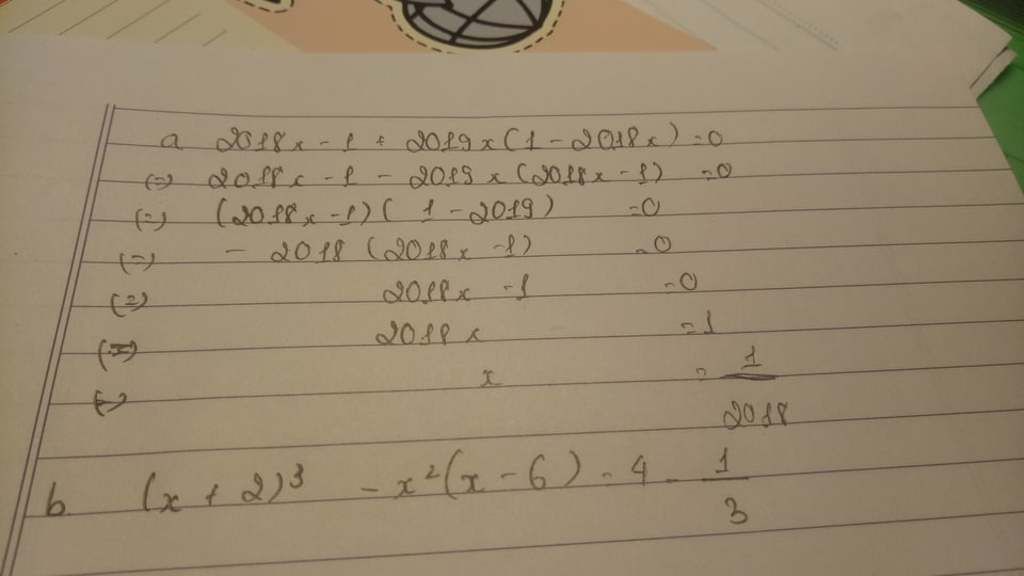 a 2018x - 1 + 2019x(1 - 2018x) = 0
(=) 2018x - 1 - 2019x(2018x - 1) = 0
(=) (2018x - 1)(1 - 2019) = 0
(=) - 2018(2018x - 1) = 0
(=) 2018x - 1 = 0
(=) 2018x = 1
(=) x = 1/2018
b (x + 2)³ - x²(x - 6) = 4 - 1/3